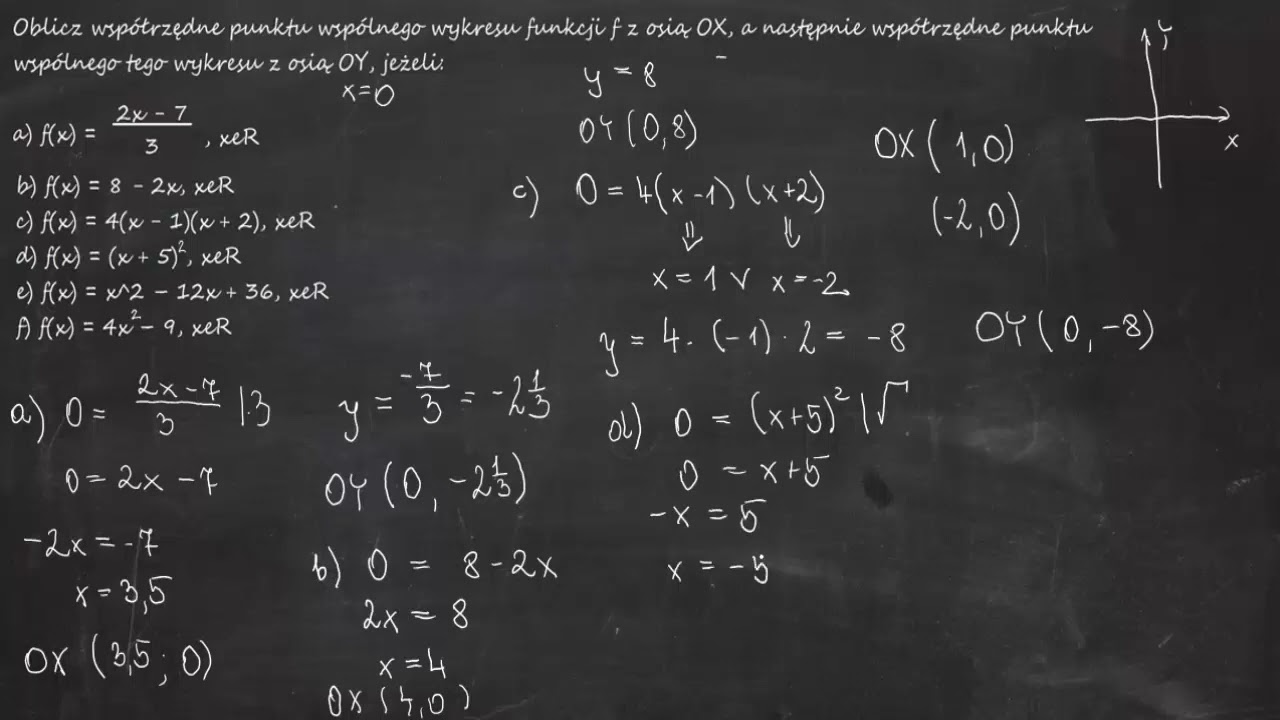 Oblicz współrzędne punktu wspólnego wykresu funkcji f z osią OX, a następnie współrzędne punktu
wspólnego tego wykresu z osią OY, jeżeli:
x=0
a) f(x) = \frac{2x - 7}{3} , xєR
b) f(x) = 8 - 2x, xєR
c) f(x) = 4(x - 1)(x + 2), xєR
d) f(x) = (x + 5)², xєR
e) f(x) = x^2 - 12x + 36, xєR
f) f(x) = 4x² - 9, xєR
a) 0 = \frac{2x - 7}{3} |·3
0 = 2x - 7
-2x = -7
x = 3,5
OX (3,5 ; 0)
y = \frac{-7}{3} = -2\frac{1}{3}
OY (0, -2\frac{1}{3})
b) 0 = 8 - 2x
2x = 8
x = 4
OX (4,0)
y = 8
OY (0,8)
c) 0 = 4(x - 1) (x+2)
⇓ ⇓
x = 1 ∨ x = -2
y = 4 · (-1) · 2 = -8
OX ( 1,0)
(-2,0)
OY ( 0, -8)
d) 0 = (x+5)² |√
0 = x+5
-x = 5
x = -5
Y
x